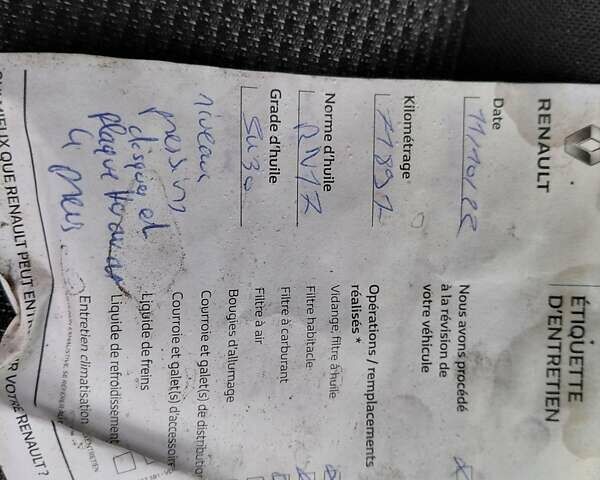 RENAULT
ÉTIQUETTE
D'ENTRETIEN
Date
11/10/22
Nous avons procédé
à la révision de
votre véhicule
Kilométrage
Opérations / remplacements
réalisés *
Norme d'huile
RN17
Vidange, filtre à huile
Filtre habitacle
Filtre à carburant
Grade d'huile
5W30
Filtre à air
Bougies d'allumage
niveau
Courroie et galet(s) de distribution
Courroie et galet(s) d'accessoire
disque et
Liquide de freins
plaque
Liquide de refroidissement
4 pneus
Entretien climatisation
MIEUX QUE RENAULT PEUT
VOTRE RENAULT ?